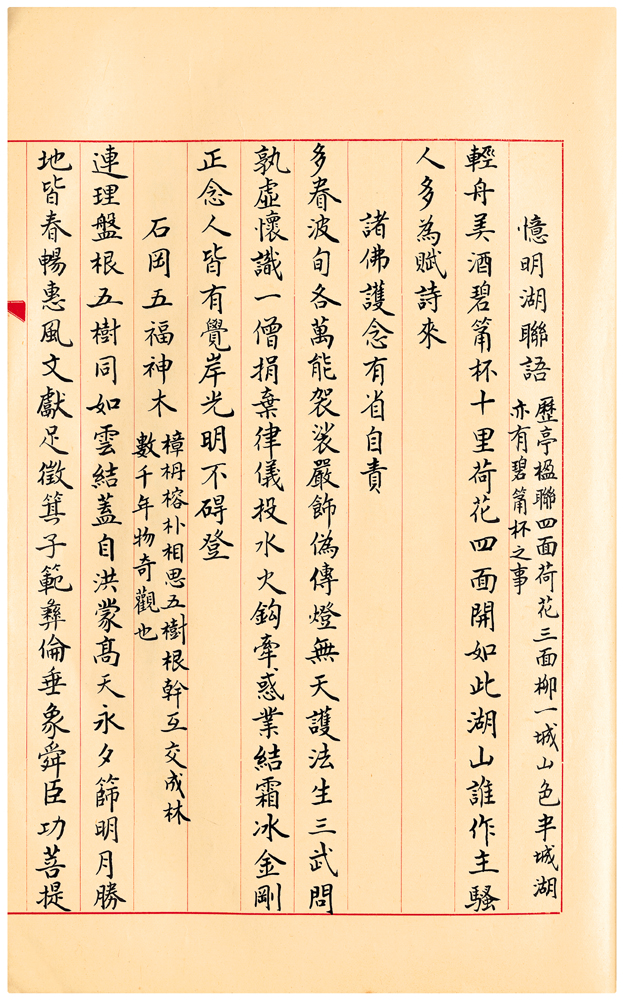 憶明湖聯語
歷亭楹聯四面荷花三面柳一城山色半城湖
亦有碧筩杯之事
輕舟美酒碧筩杯十里荷花四面開如此湖山誰作主騷
人多為賦詩來
諸佛護念有省自責
多眷波旬各萬能袈裟嚴飾偽傳燈無天護法生三武問
孰虛懷識一僧捐棄律儀投水火鈎牽惑業結霜冰金剛
正念人皆有覺岸光明不碍登
石岡五福神木
樟枬榕朴相思五樹根幹互交成林
數千年物奇觀也
連理盤根五樹同如雲結蓋自洪蒙高天永夕篩明月勝
地皆春暢惠風文獻足徵箕子範彝倫垂象舜臣功菩提